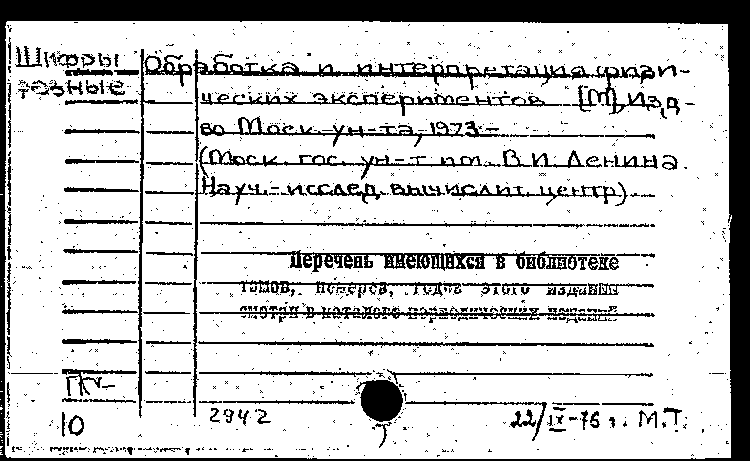 Шифры
разные
Обработка и интерпретация физи-
ческих экспериментов [М], Изд-
во Моск. ун-та, 1973 -
(Моск. гос. ун-т им. В.И. Ленина.
Науч.-исслед. вычислит. центр).
Перечень имеющихся в библиотеке
томов, номеров, годов этого издания
смотри в каталоге периодических изданий
10
2942
22/IX-76 г. М.Т.